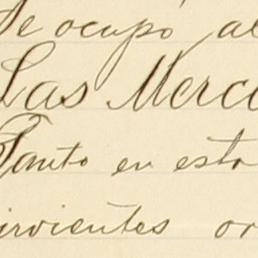 Se ocupó al
Las Merce
Tanto en esta
irvientes or